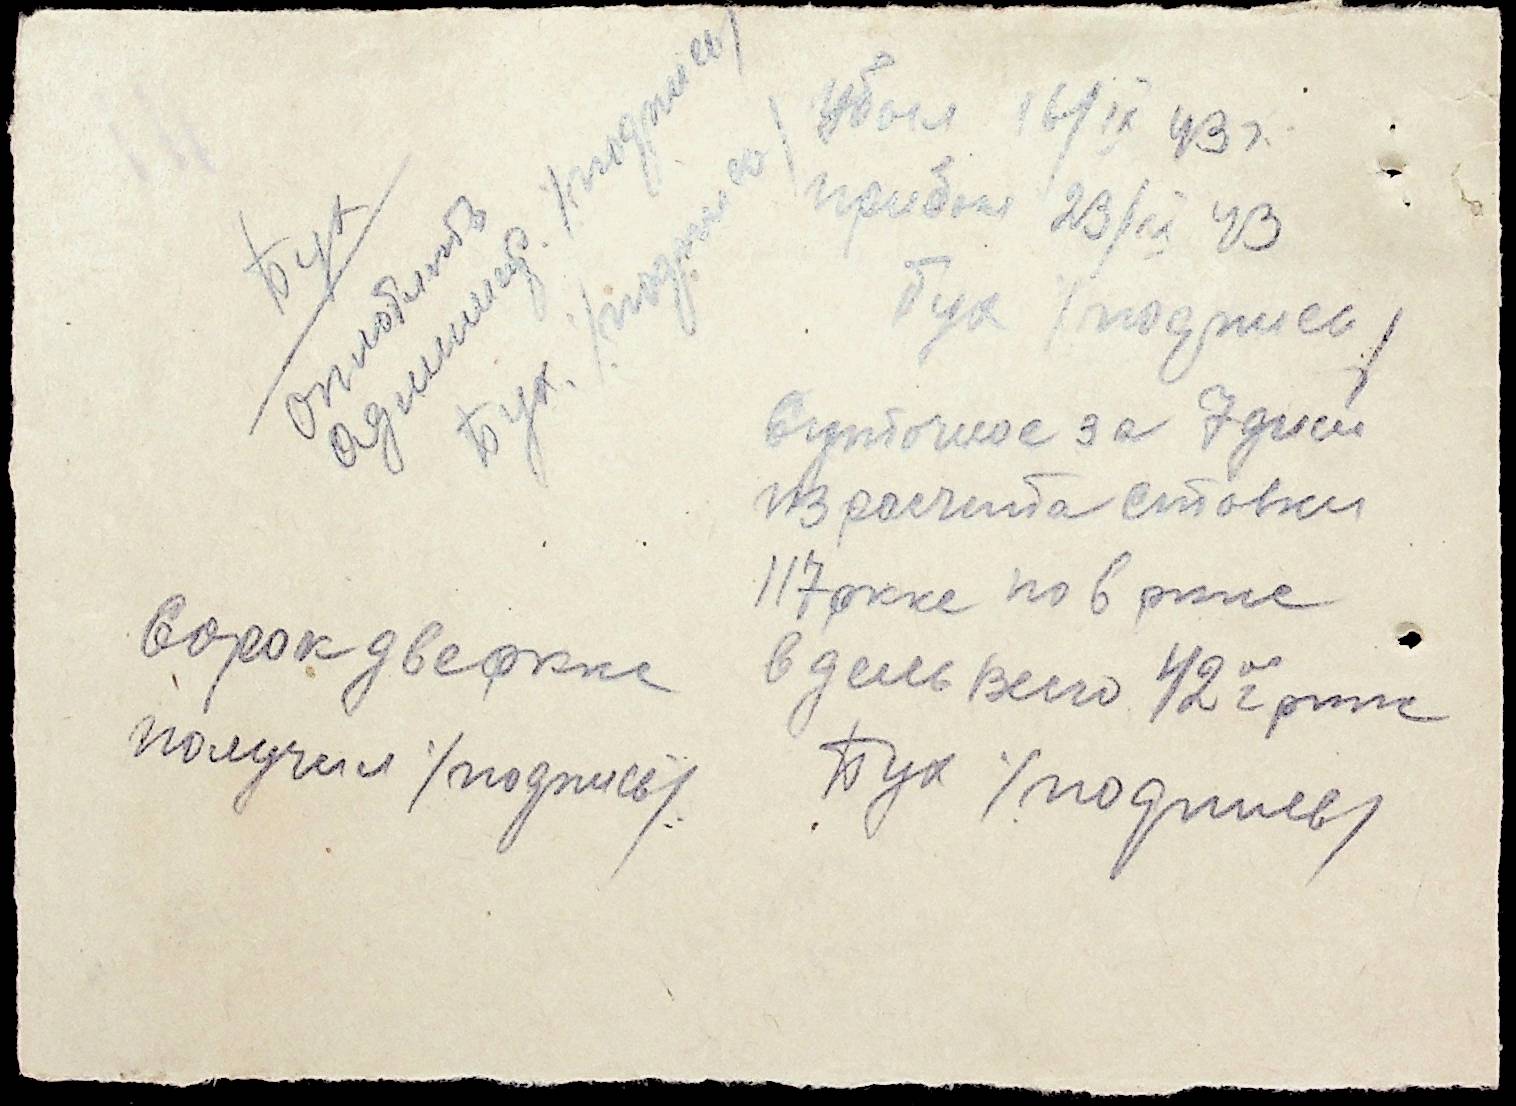 Бух
оплотить
админис. /подпись/
Бух. /подпись/
Убыл 16/IX 43 г.
прибыл 23/IX 43
Бух /подпись/
Суточное за 7 дней
из расчета ставки
117 ркке по 6 ркке
в день всего 42 ркке
Бух /подпись/
Сорок две ркке
получил /подпись/